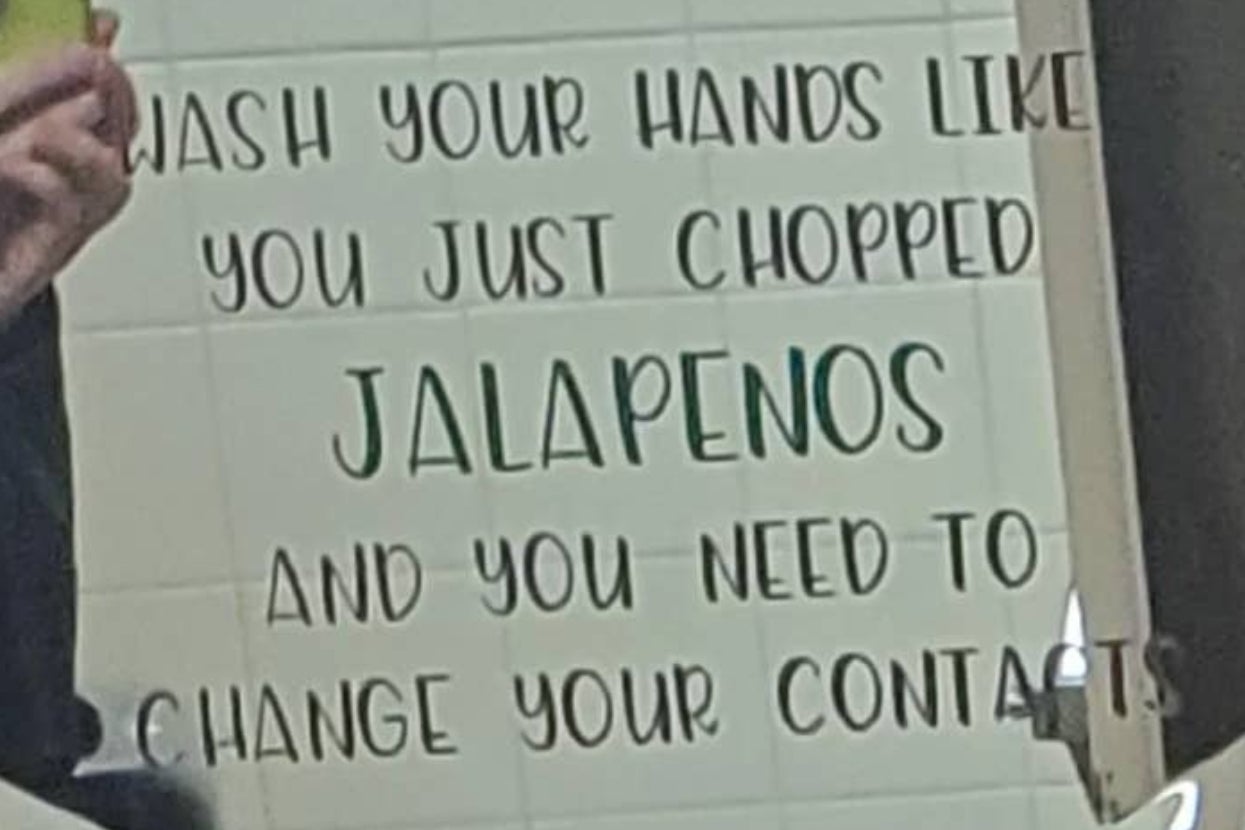 WASH YOUR HANDS LIKE
YOU JUST CHOPPED
JALAPENOS
AND YOU NEED TO
CHANGE YOUR CONTACTS